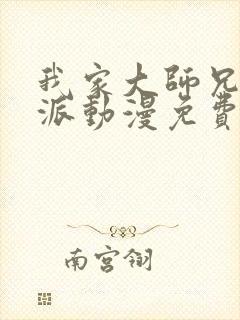 我家大師兄
派動漫免費
南宮翎